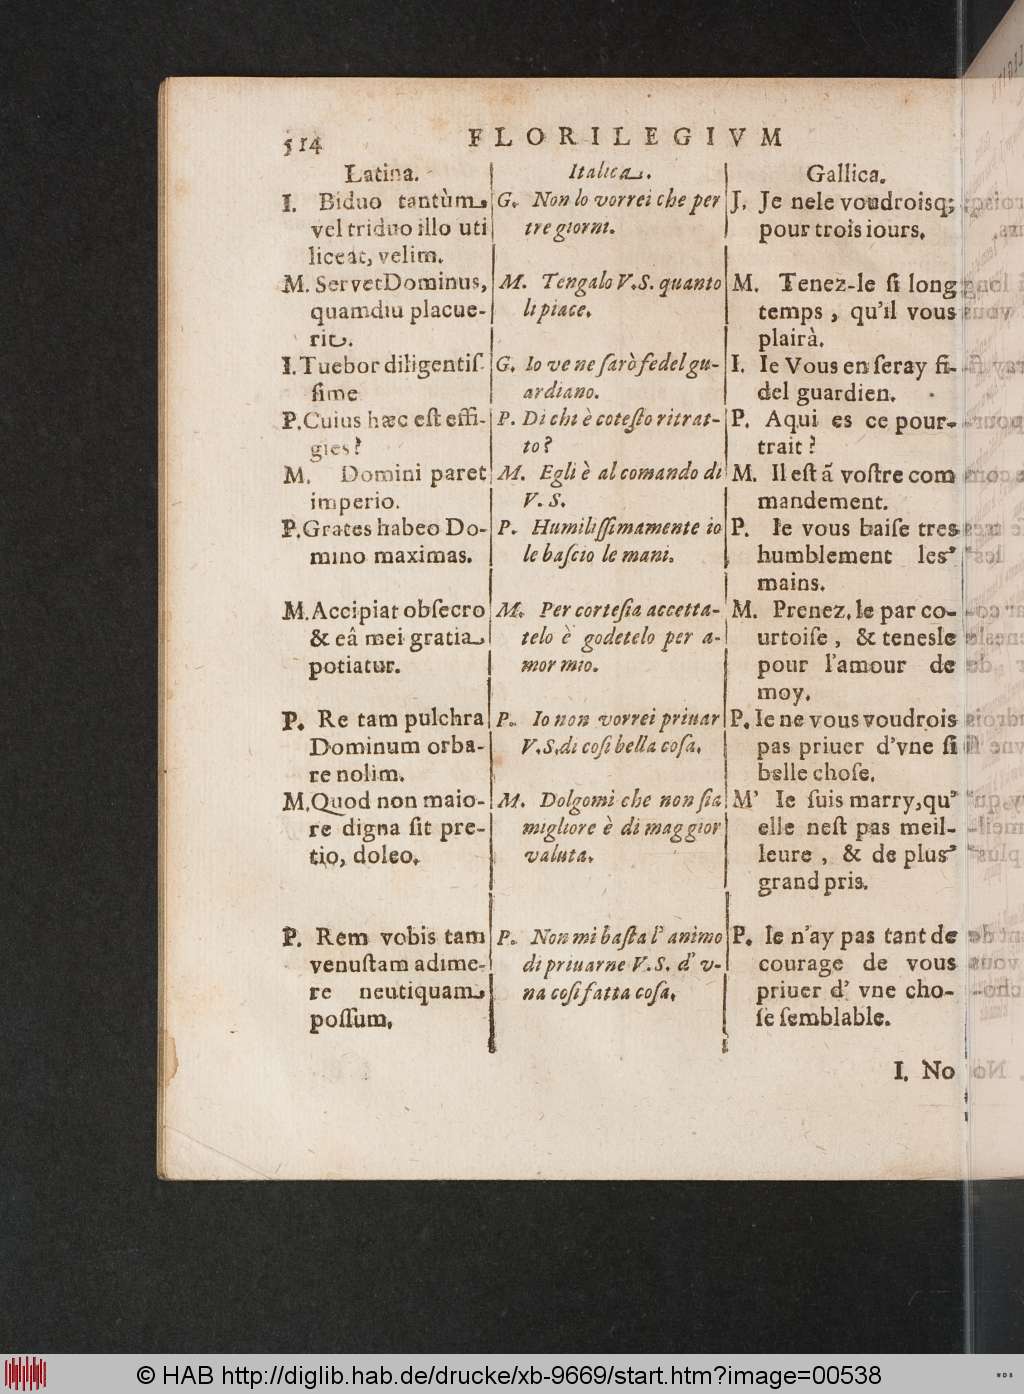 514
FLORILEGIVM
Latina.
I. Biduo tantùm
vel triduo illo uti
liceat, velim.
M. Servet Dominus,
quamdiu placue-
rit.
I. Tuebor diligentiſ-
ſime
P. Cuius hæc eſt effi-
gies?
M. Domini paret
imperio.
P. Grates habeo Do-
mino maximas.
M. Accipiat obſecro
& eâ mei gratia
potiatur.
P. Re tam pulchra
Dominum orba-
re nolim.
M. Quod non maio-
re digna ſit pre-
tio, doleo.
P. Rem vobis tam
venuſtam adime-
re neutiquam
poſſum.
Italica.
G. Non lo vorrei che per
tre giorni.
M. Tengalo V.S. quanto
li piace.
G. Io ve ne ſarò fedel gu-
ardiano.
P. Di chi è coteſto ritrat-
to?
M. Egli è al comando di
V. S.
P. Humiliſſimamente io
le baſcio le mani.
M. Per corteſia accetta-
telo è godetelo per a-
mor mio.
P. Io non vorrei priuar
V.S. di coſi bella coſa.
M. Dolgomi che non ſia
migliore è di maggior
valuta.
P. Non mi baſta l' animo
di priuarne V.S. d' v-
na coſi fatta coſa.
Gallica.
J. Je nele voudroisq;
pour trois iours.
M. Tenez-le ſi long
temps, qu'il vous
plairà.
I. Ie Vous en ſeray fi-
del guardien.
P. Aqui es ce pour-
trait?
M. Il eſt ã voſtre com
mandement.
P. Ie vous baiſe tres
humblement les
mains.
M. Prenez, le par co-
urtoiſe, & tenesle
pour l'amour de
moy.
P. Ie ne vous voudrois
pas priuer d'vne ſi
belle choſe.
M' Ie ſuis marry, qu'
elle neſt pas meil-
leure, & de plus
grand pris.
P. Ie n'ay pas tant de
courage de vous
priuer d' vne cho-
ſe ſemblable.
I. No
© HAB http://diglib.hab.de/drucke/xb-9669/start.htm?image=00538